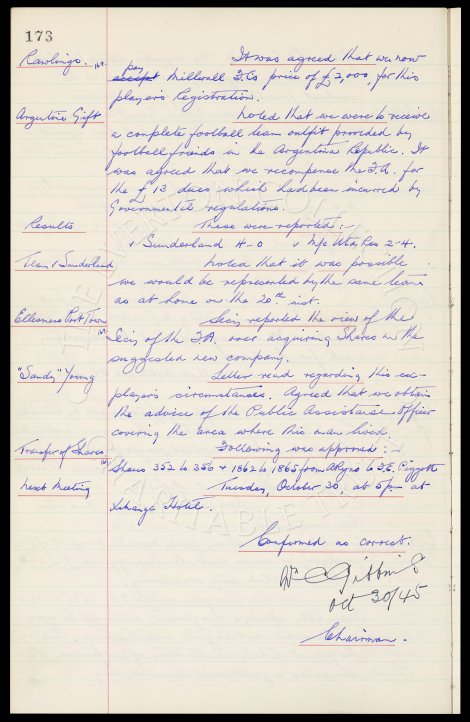 173
Rawlings. It was agreed that we now
pay
accept Millwall F.Co price of £2,000, for this
players Registration.
Argentine Gift Noted that we were to receive
a complete football team outfit provided by
football friends in the Argentina Republic. It
was agreed that we recompense the F.A. for
the £13 dues which had been incurred by
Governmental regulations.
Results These were reported :-
v Sunderland 4-0 v M/c Utd Res 2-4.
Team v Sunderland Noted that it was possible
we would be represented by the same team
as at home on the 20th inst.
Ellesmere Port Town Secy reported the view of the
Secy of the F.A. over acquiring Shares in the
suggested new company.
"Sandy" Young Letter read regarding this ex-
players circumstances. Agreed that we obtain
the advice of the Public Assistance Officer
covering the area where this man lived.
Transfer of Shares Following was approved :-
Shares 352 to 356 + 1862 to 1865 from to
Next Meeting Tuesday, October 30, at 5pm at
Xchange Hotel.
Confirmed as correct.
Gibbins
Oct 30/45
Chairman.